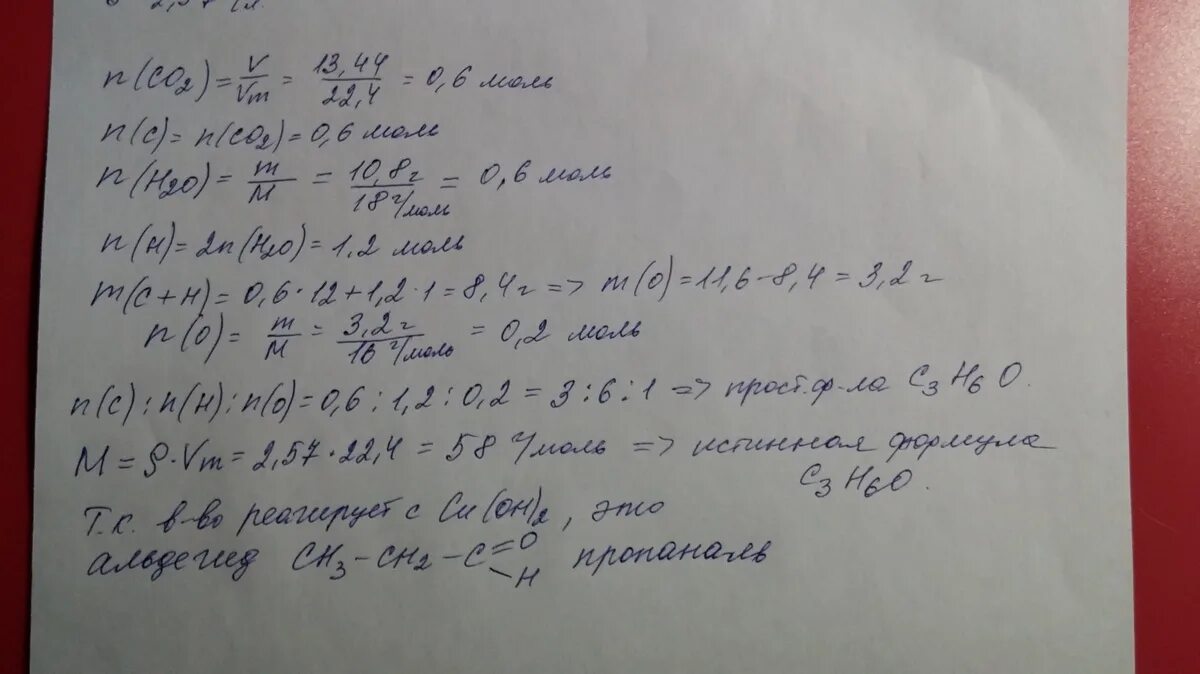 n(CO2) = V/Vm = 13,44/22,4 = 0,6 моль
n(C) = n(CO2) = 0,6 моль
n(H2O) = m/M = 10,8г/18 г/моль = 0,6 моль
n(H) = 2n(H2O) = 1,2 моль
m(C+H) = 0,6·12+1,2·1 = 8,4г => m(O) = 11,6-8,4 = 3,2 г
n(O) = m/M = 3,2г/16 г/моль = 0,2 моль
n(C):n(H):n(O) = 0,6:1,2:0,2 = 3:6:1 => прост. ф-ла C3H6O.
M = ρ·Vm = 2,57·22,4 = 58 г/моль => истинная формула
C3H6O.
Т.к. в-во реагирует с Cu(OH)2, это
альдегид CH3-CH2-C=O -H пропаналь